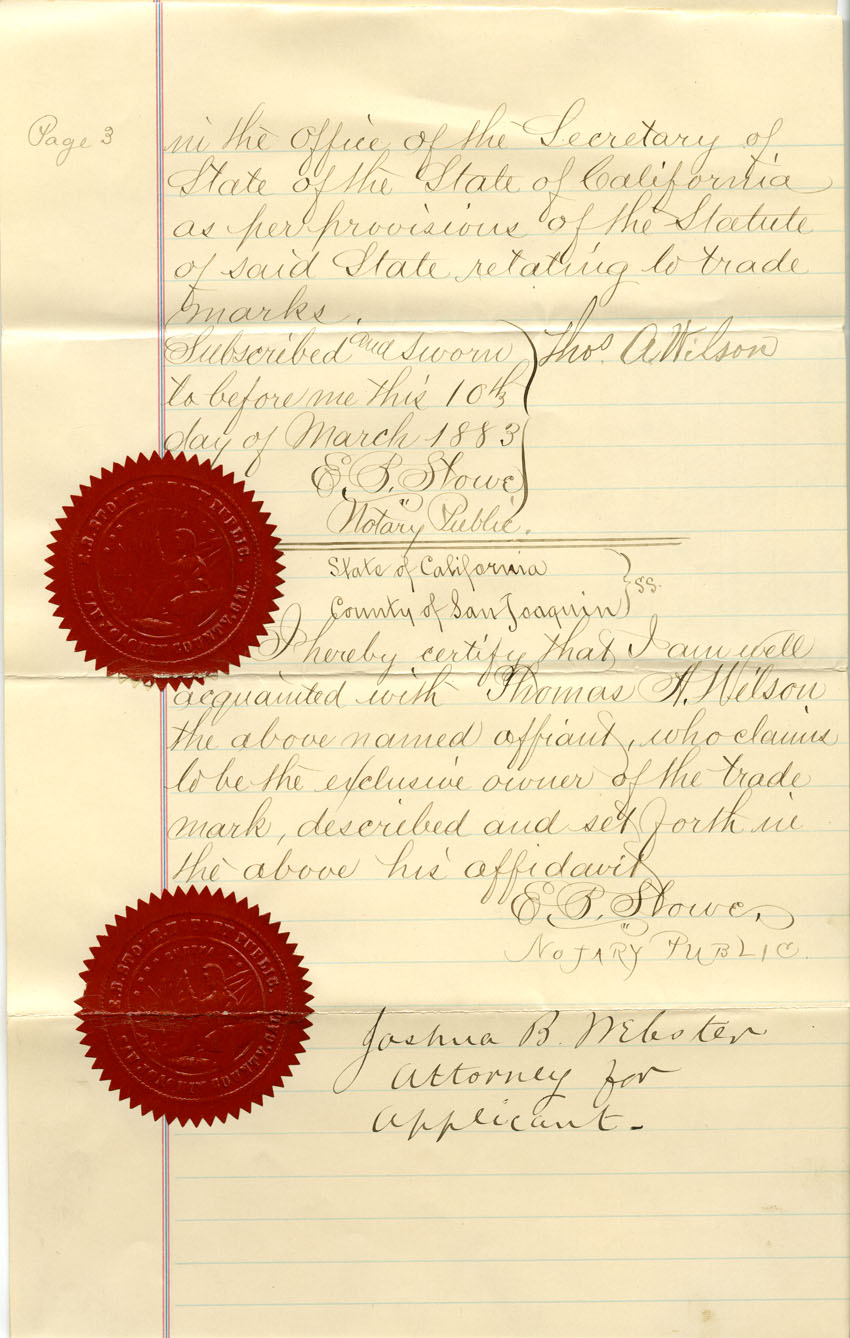 Page 3
in the Office of the Secretary of
State of the State of California
as per provisions of the Statute
of said State relating to trade
marks.
Subscribed and sworn
to before me this 10th
day of March 1883
Thos. A. Wilson
E. B. Stowe
Notary Public.
State of California
County of San Joaquin
SS.
I hereby certify that I am well
acquainted with Thomas A. Wilson
the above named affiant, who claims
to be the exclusive owner of the trade
mark, described and set forth in
the above his affidavit
E. B. Stowe.
NOTARY PUBLIC.
Joshua B. Webster
Attorney for
Applicant.